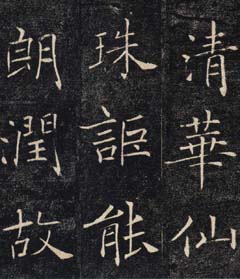 清華仙
珠詎能
朗潤故